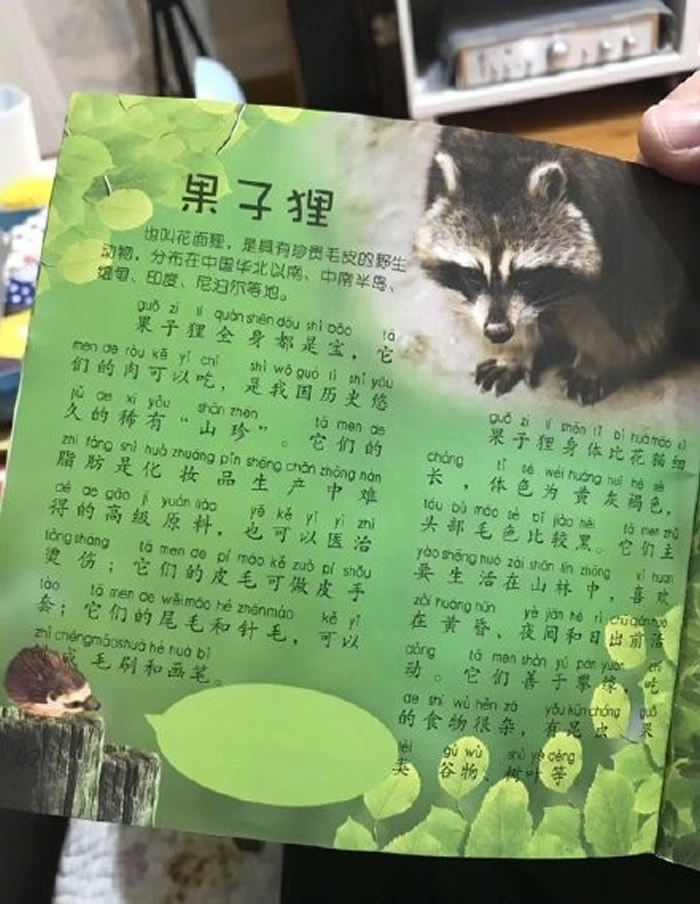 果子狸
也叫花面狸，是具有珍贵毛皮的野生
动物，分布在中国华北以南、中南半岛、
缅甸、印度、尼泊尔等地。
guǒ zi lí quán shēn dōu shì bǎo tā
果子狸全身都是宝，它
men de ròu kě yǐ chī shì wǒ guó lì shǐ yōu
们的肉可以吃，是我国历史悠
jiǔ de xī yǒu shān zhēn tā men de
久的稀有“山珍”。它们的
zhī fáng shì huà zhuāng pǐn shēng chǎn zhōng nán
脂肪是化妆品生产中难
dé de gāo jí yuán liào yě kě yǐ yī zhì
得的高级原料，也可以医治
tàng shāng tā men de pí máo kě zuò pí shǒu
烫伤；它们的皮毛可做皮手
tào tā men de wěi máo hé zhēn máo kě yǐ
套；它们的尾毛和针毛，可以
zhì chéng máo shuā hé huà bǐ
成毛刷和画笔。
guǒ zi lí shēn tǐ bǐ huā māo xì
果子狸身体比花猫细
cháng tǐ sè wéi huáng huī hè sè
长，体色为黄灰褐色，
tóu bù máo sè bǐ jiào hēi tā men zhǔ
头部毛色比较黑。它们主
yào shēng huó zài shān lín zhōng xǐ huan
要生活在山林中，喜欢
zài huáng hūn yè jiān hé rì chū qián huó
在黄昏、夜间和日出前活
dòng tā men shàn yú pān yuán chī
动。它们善于攀缘，吃
de shí wù hěn zá yǒu kūn chóng guǒ
的食物很杂，有昆虫、果
lèi gǔ wù shù yè děng
类、谷物、树叶等
62